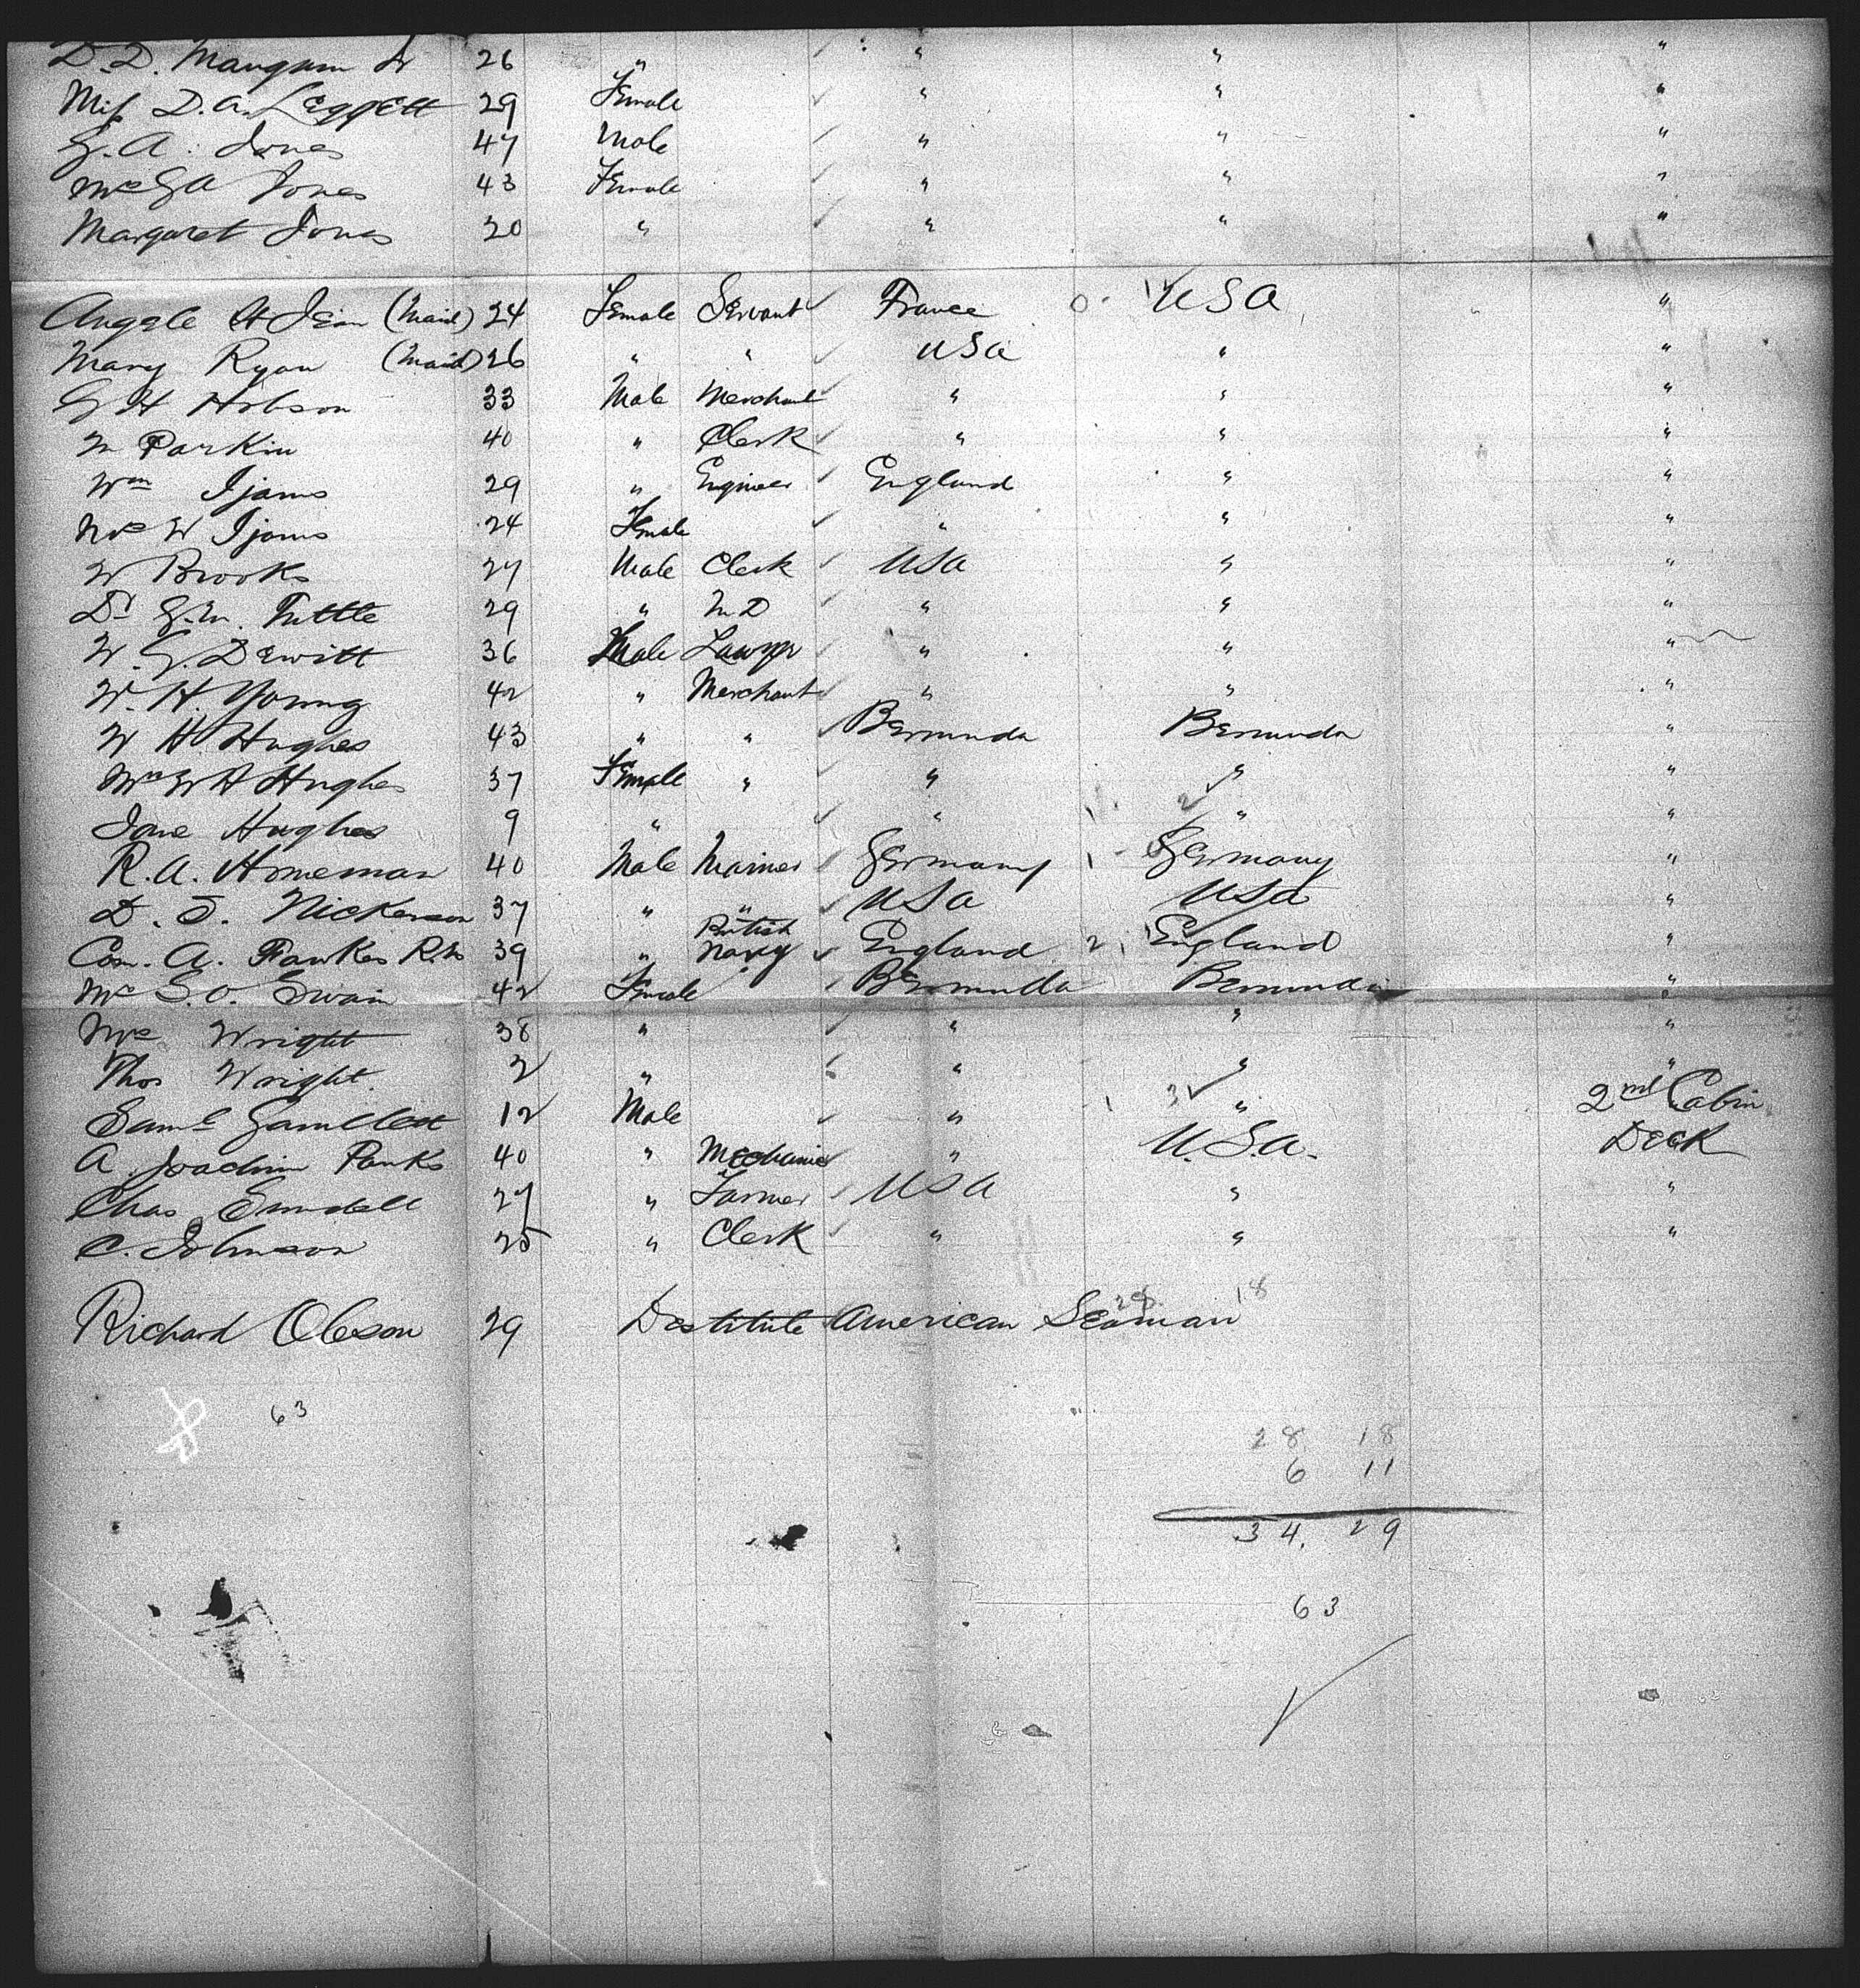 D. D. Mangum Jr 26 " " " "
Miss D. A. Leggett 29 Female " " "
G. A. Jones 47 Male " " "
Mrs G A Jones 43 Female " " "
Margaret Jones 20 " " " "
Angele St Jean (Maid) 24 Female Servant France 0 - 1 USA "
Mary Ryan (Maid) 26 " " USA " "
G H Hobson 33 Male Merchant " " "
M Parkin 40 " Clerk " " "
Wm Ijams 29 " Engineer England " "
Mrs W Ijams 24 Female " " "
W Brooks 27 Male Clerk USA " "
Dr G. M. Tuttle 29 " M D " " "
W. G. Dewitt 36 Male Lawyer " " "
W. H. Young 42 " Merchant " " "
W H Hughes 43 " " Bermuda Bermuda "
Mrs W H Hughes 37 Female " " " "
Jane Hughes 9 " " 1 2 " "
R. A. Horneman 40 Male Mariner Germany 1 - 0 Germany "
D. S. Nickerson 37 " " USA USA "
Com. A. Fawkes R.N. 39 " British Navy England 2 1 England "
Mrs S. O. Swain 42 Female Bermuda Bermuda "
Mrs Wright 38 " " " "
Thos Wright 2 " " " "
Saml Gamblett 12 Male " 1 3 " 2nd Cabin
A. Joachim Panks 40 " Mechanic " U.S.A. Deck
Chas Sundell 27 " Farmer USA " "
C. Johnson 25 " Clerk " " "
28 18
Richard Oleson 29 Destitute American Seaman
63
28 18
6 11
34. 29
63